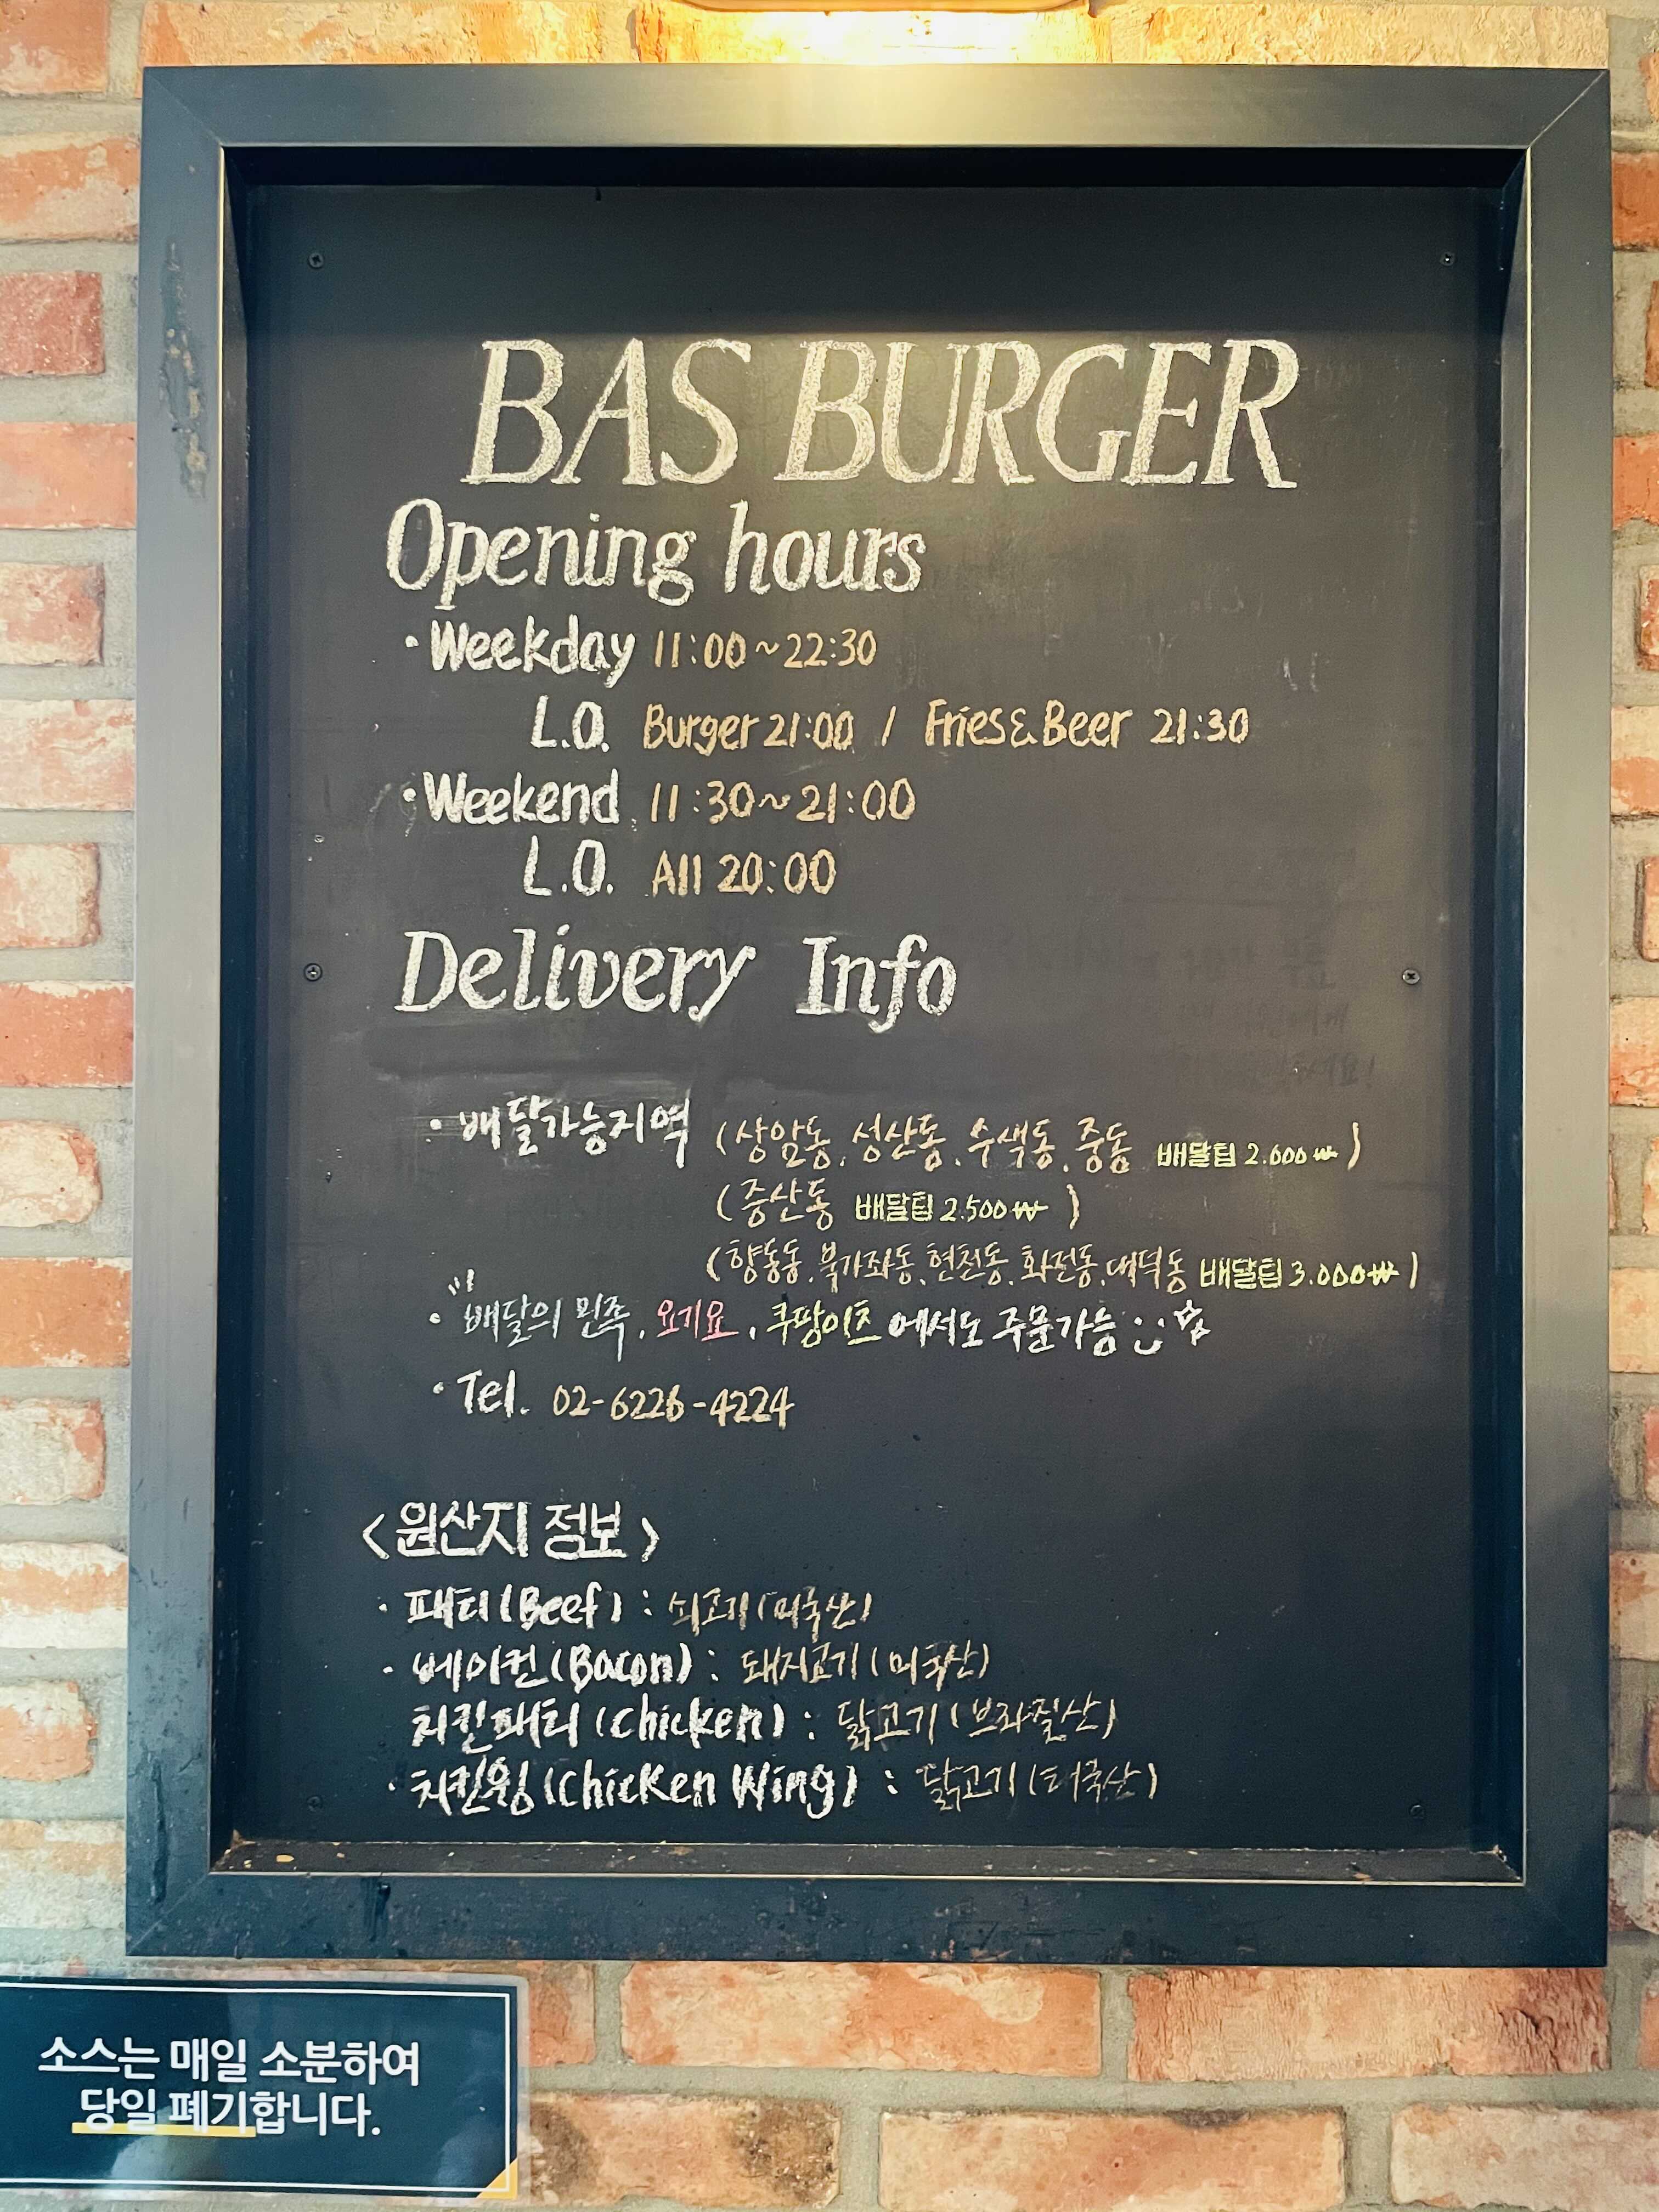 BAS BURGER
Opening hours
· Weekday 11:00~22:30
L.O. Burger 21:00 / Fries&Beer 21:30
· Weekend 11:30~21:00
L.O. All 20:00
Delivery Info
· 배달가능지역 (상암동, 성산동, 수색동, 중동 배달팁 2.000₩)
(증산동 배달팁 2.500₩)
(향동동, 북가좌동, 현천동, 화전동, 대덕동 배달팁 3.000₩)
· 배달의 민족, 요기요, 쿠팡이츠 에서도 주문가능
· Tel. 02-6226-4224
<원산지 정보>
· 패티(Beef) : 쇠고기(미국산)
· 베이컨(Bacon) : 돼지고기(미국산)
치킨패티(chicken) : 닭고기(브라질산)
· 치킨윙(chicken Wing) : 닭고기(태국산)
소스는 매일 소분하여
당일 폐기합니다.